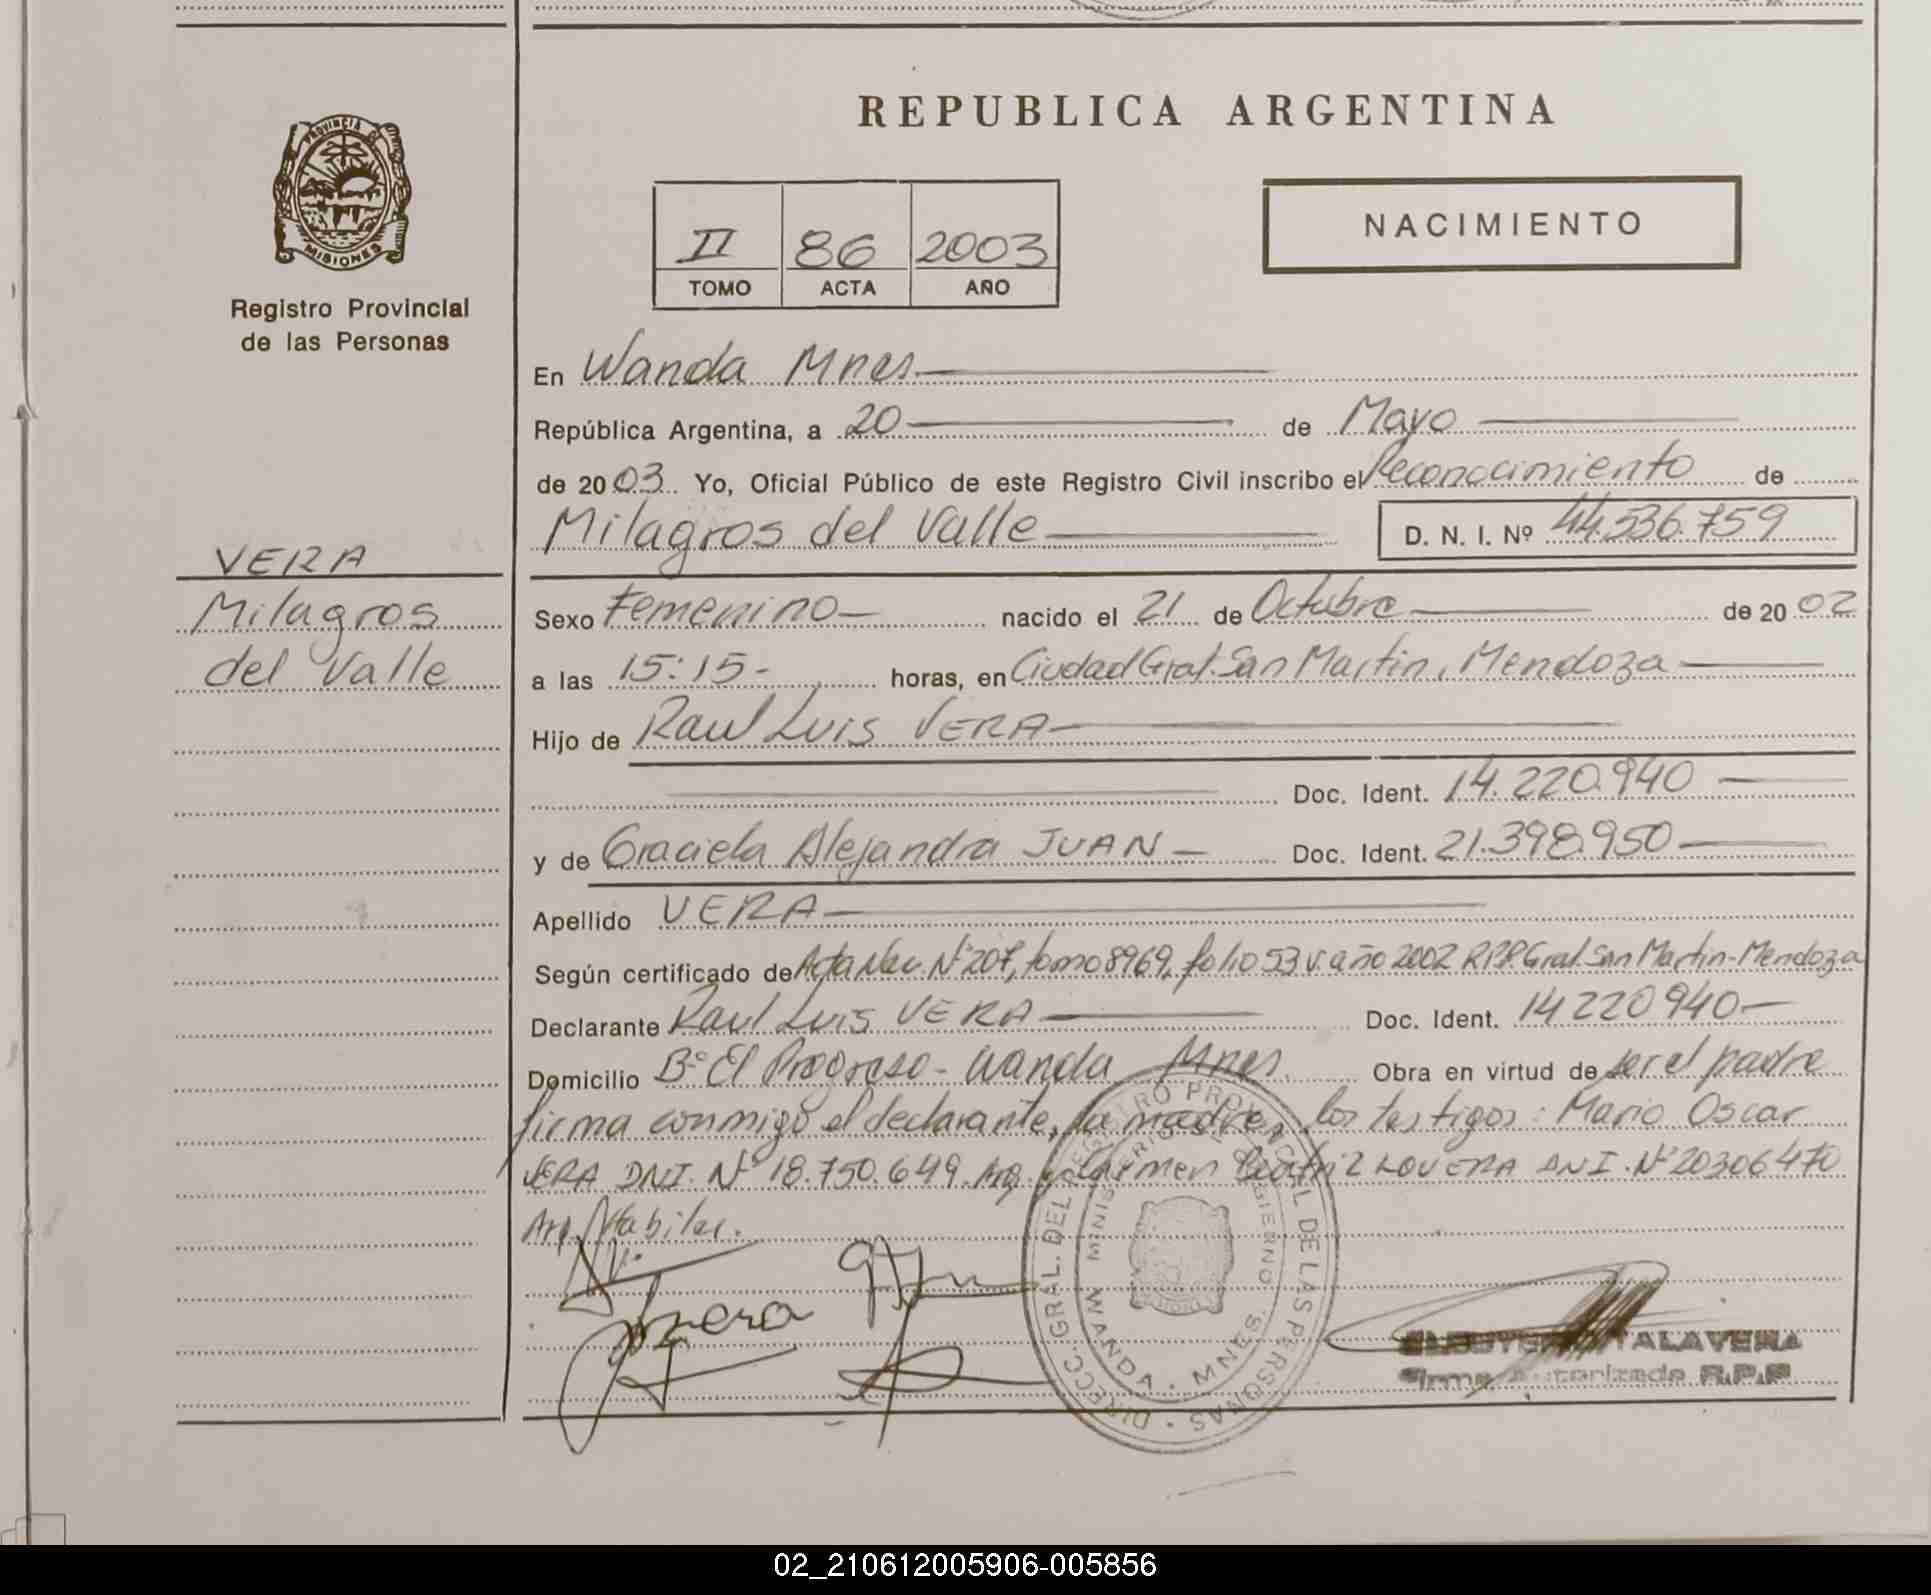 REPUBLICA ARGENTINA
PROVINCIA DE
MISIONES
Registro Provincial
de las Personas
II 86 2003
TOMO ACTA AÑO
NACIMIENTO
En Wanda Mnes
República Argentina, a 20 de Mayo
de 2003 Yo, Oficial Público de este Registro Civil inscribo el Reconocimiento de
Milagros del Valle D. N. I. Nº 44.536.759
VERA
Milagros
del Valle
Sexo Femenino nacido el 21 de Octubre de 2002
a las 15:15- horas, en Ciudad Gral. San Martin, Mendoza
Hijo de Raul Luis VERA
Doc. Ident. 14.220.940
y de Graciela Alejandra JUAN Doc. Ident. 21.398.950
Apellido VERA
Según certificado de Acta Nac. Nº 207, tomo 8969, folio 53 v. año 2002 R.P.P. Gral. San Martin-Mendoza
Declarante Raul Luis VERA Doc. Ident. 14 220 940
Domicilio Bº El Progreso - Wanda Mnes. Obra en virtud de ser el padre
firma conmigo el declarante, la madre, los testigos: Mario Oscar
VERA DNI. Nº 18.750.649. Arg. y Carmen Beatriz LOVERA DNI. Nº 20306470
Arg. Habiles.
DIRECC. GRAL. DEL REGISTRO PROVINCIAL DE LAS PERSONAS
MINISTERIO DE GOBIERNO
WANDA - MNES
TALAVERA
Firma Autorizada R.P.P
02_210612005906-005856